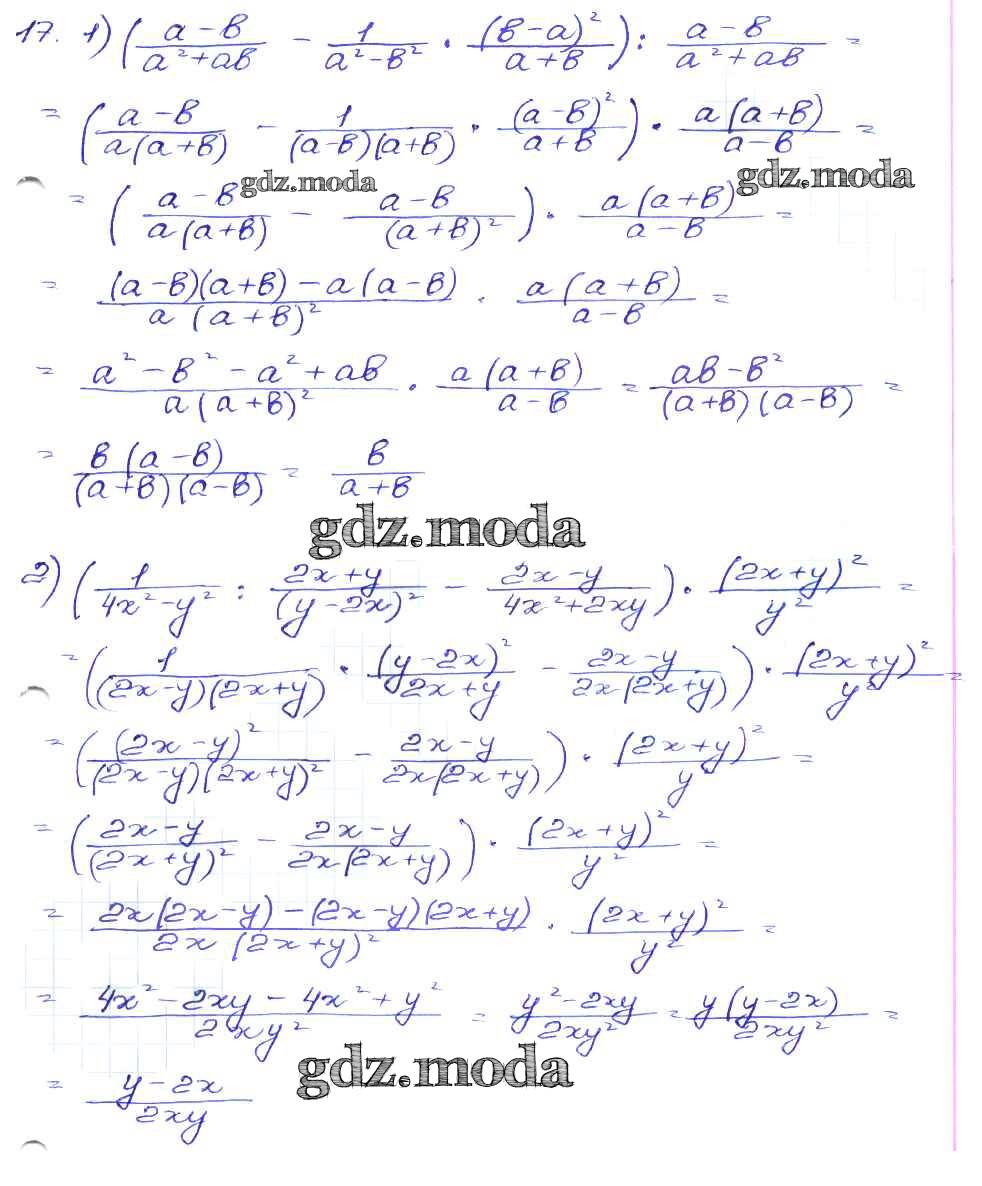 17. 1) ( (a-b)/(a²+ab) - 1/(a²-b²) · (b-a)²/(a+b) ) : (a-b)/(a²+ab) =
= ( (a-b)/(a(a+b)) - 1/((a-b)(a+b)) · (a-b)²/(a+b) ) · a(a+b)/(a-b) =
gdz.moda gdz.moda
= ( (a-b)/(a(a+b)) - (a-b)/(a+b)² ) · a(a+b)/(a-b) =
= ((a-b)(a+b)-a(a-b))/(a(a+b)²) · a(a+b)/(a-b) =
= (a²-b²-a²+ab)/(a(a+b)²) · a(a+b)/(a-b) = (ab-b²)/((a+b)(a-b)) =
= b(a-b)/((a+b)(a-b)) = b/(a+b)
gdz.moda
2) ( 1/(4x²-y²) : (2x+y)/(y-2x)² - (2x-y)/(4x²+2xy) ) · (2x+y)²/y² =
= ( 1/((2x-y)(2x+y)) · (y-2x)²/(2x+y) - (2x-y)/(2x(2x+y)) ) · (2x+y)²/y² =
= ( (2x-y)²/((2x-y)(2x+y)²) - (2x-y)/(2x(2x+y)) ) · (2x+y)²/y² =
= ( (2x-y)/(2x+y)² - (2x-y)/(2x(2x+y)) ) · (2x+y)²/y² =
= (2x(2x-y)-(2x-y)(2x+y))/(2x(2x+y)²) · (2x+y)²/y² =
= (4x²-2xy-4x²+y²)/(2xy²) = (y²-2xy)/(2xy²) = y(y-2x)/(2xy²) =
gdz.moda
= (y-2x)/(2xy)